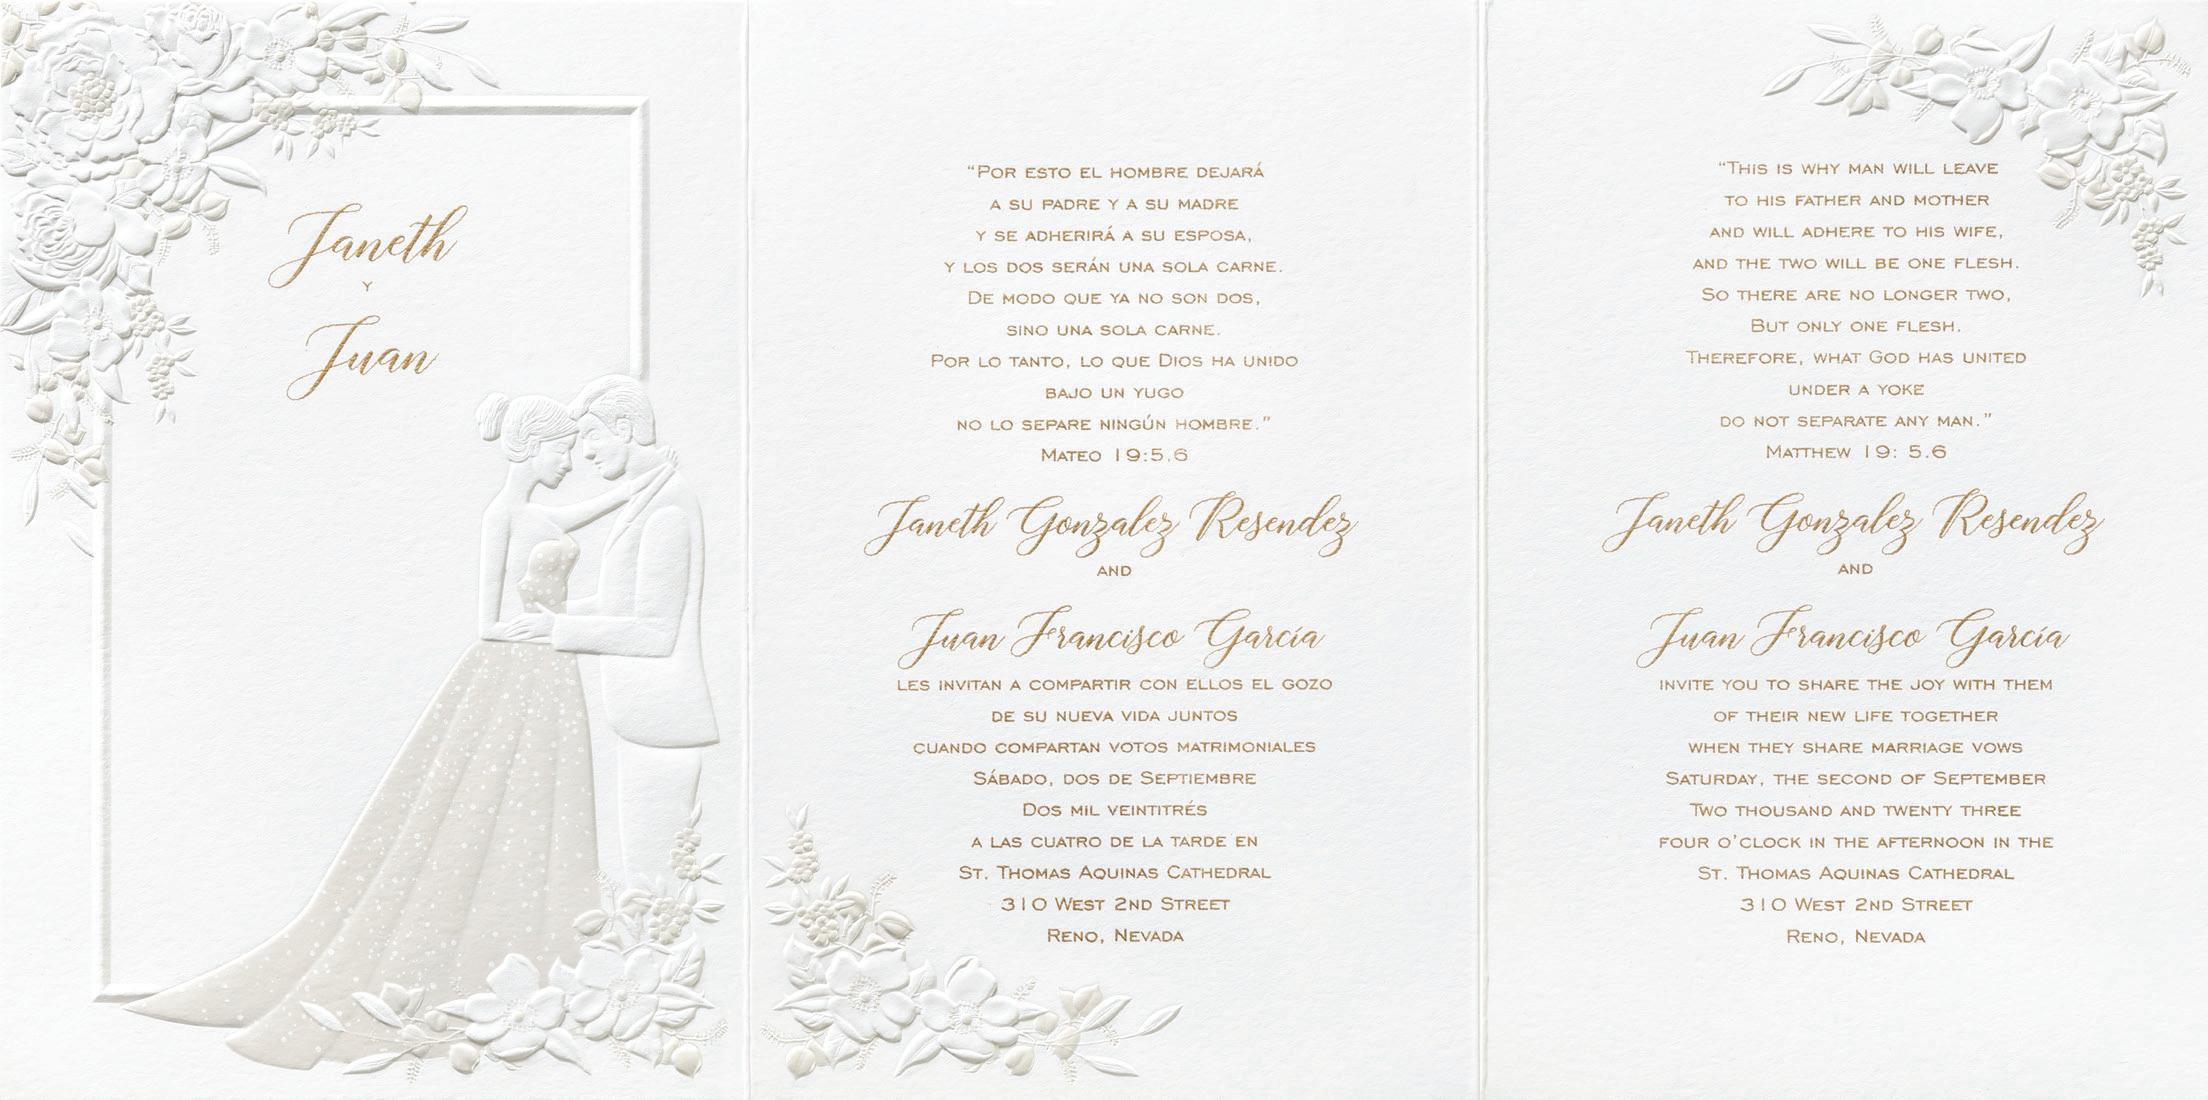 Janeth
Y
Juan
“Por esto el hombre dejará
a su padre y a su madre
y se adherirá a su esposa,
y los dos serán una sola carne.
De modo que ya no son dos,
sino una sola carne.
Por lo tanto, lo que Dios ha unido
bajo un yugo
no lo separe ningún hombre.”
Mateo 19:5.6
Janeth Gonzalez Resendez
and
Juan Francisco García
les invitan a compartir con ellos el gozo
de su nueva vida juntos
cuando compartan votos matrimoniales
Sábado, dos de Septiembre
Dos mil veintitrés
a las cuatro de la tarde en
St. Thomas Aquinas Cathedral
310 West 2nd Street
Reno, Nevada
“This is why man will leave
to his father and mother
and will adhere to his wife,
and the two will be one flesh.
So there are no longer two,
But only one flesh.
Therefore, what God has united
under a yoke
do not separate any man.”
Matthew 19: 5.6
Janeth Gonzalez Resendez
and
Juan Francisco García
invite you to share the joy with them
of their new life together
when they share marriage vows
Saturday, the second of September
Two thousand and twenty three
four o’clock in the afternoon in the
St. Thomas Aquinas Cathedral
310 West 2nd Street
Reno, Nevada